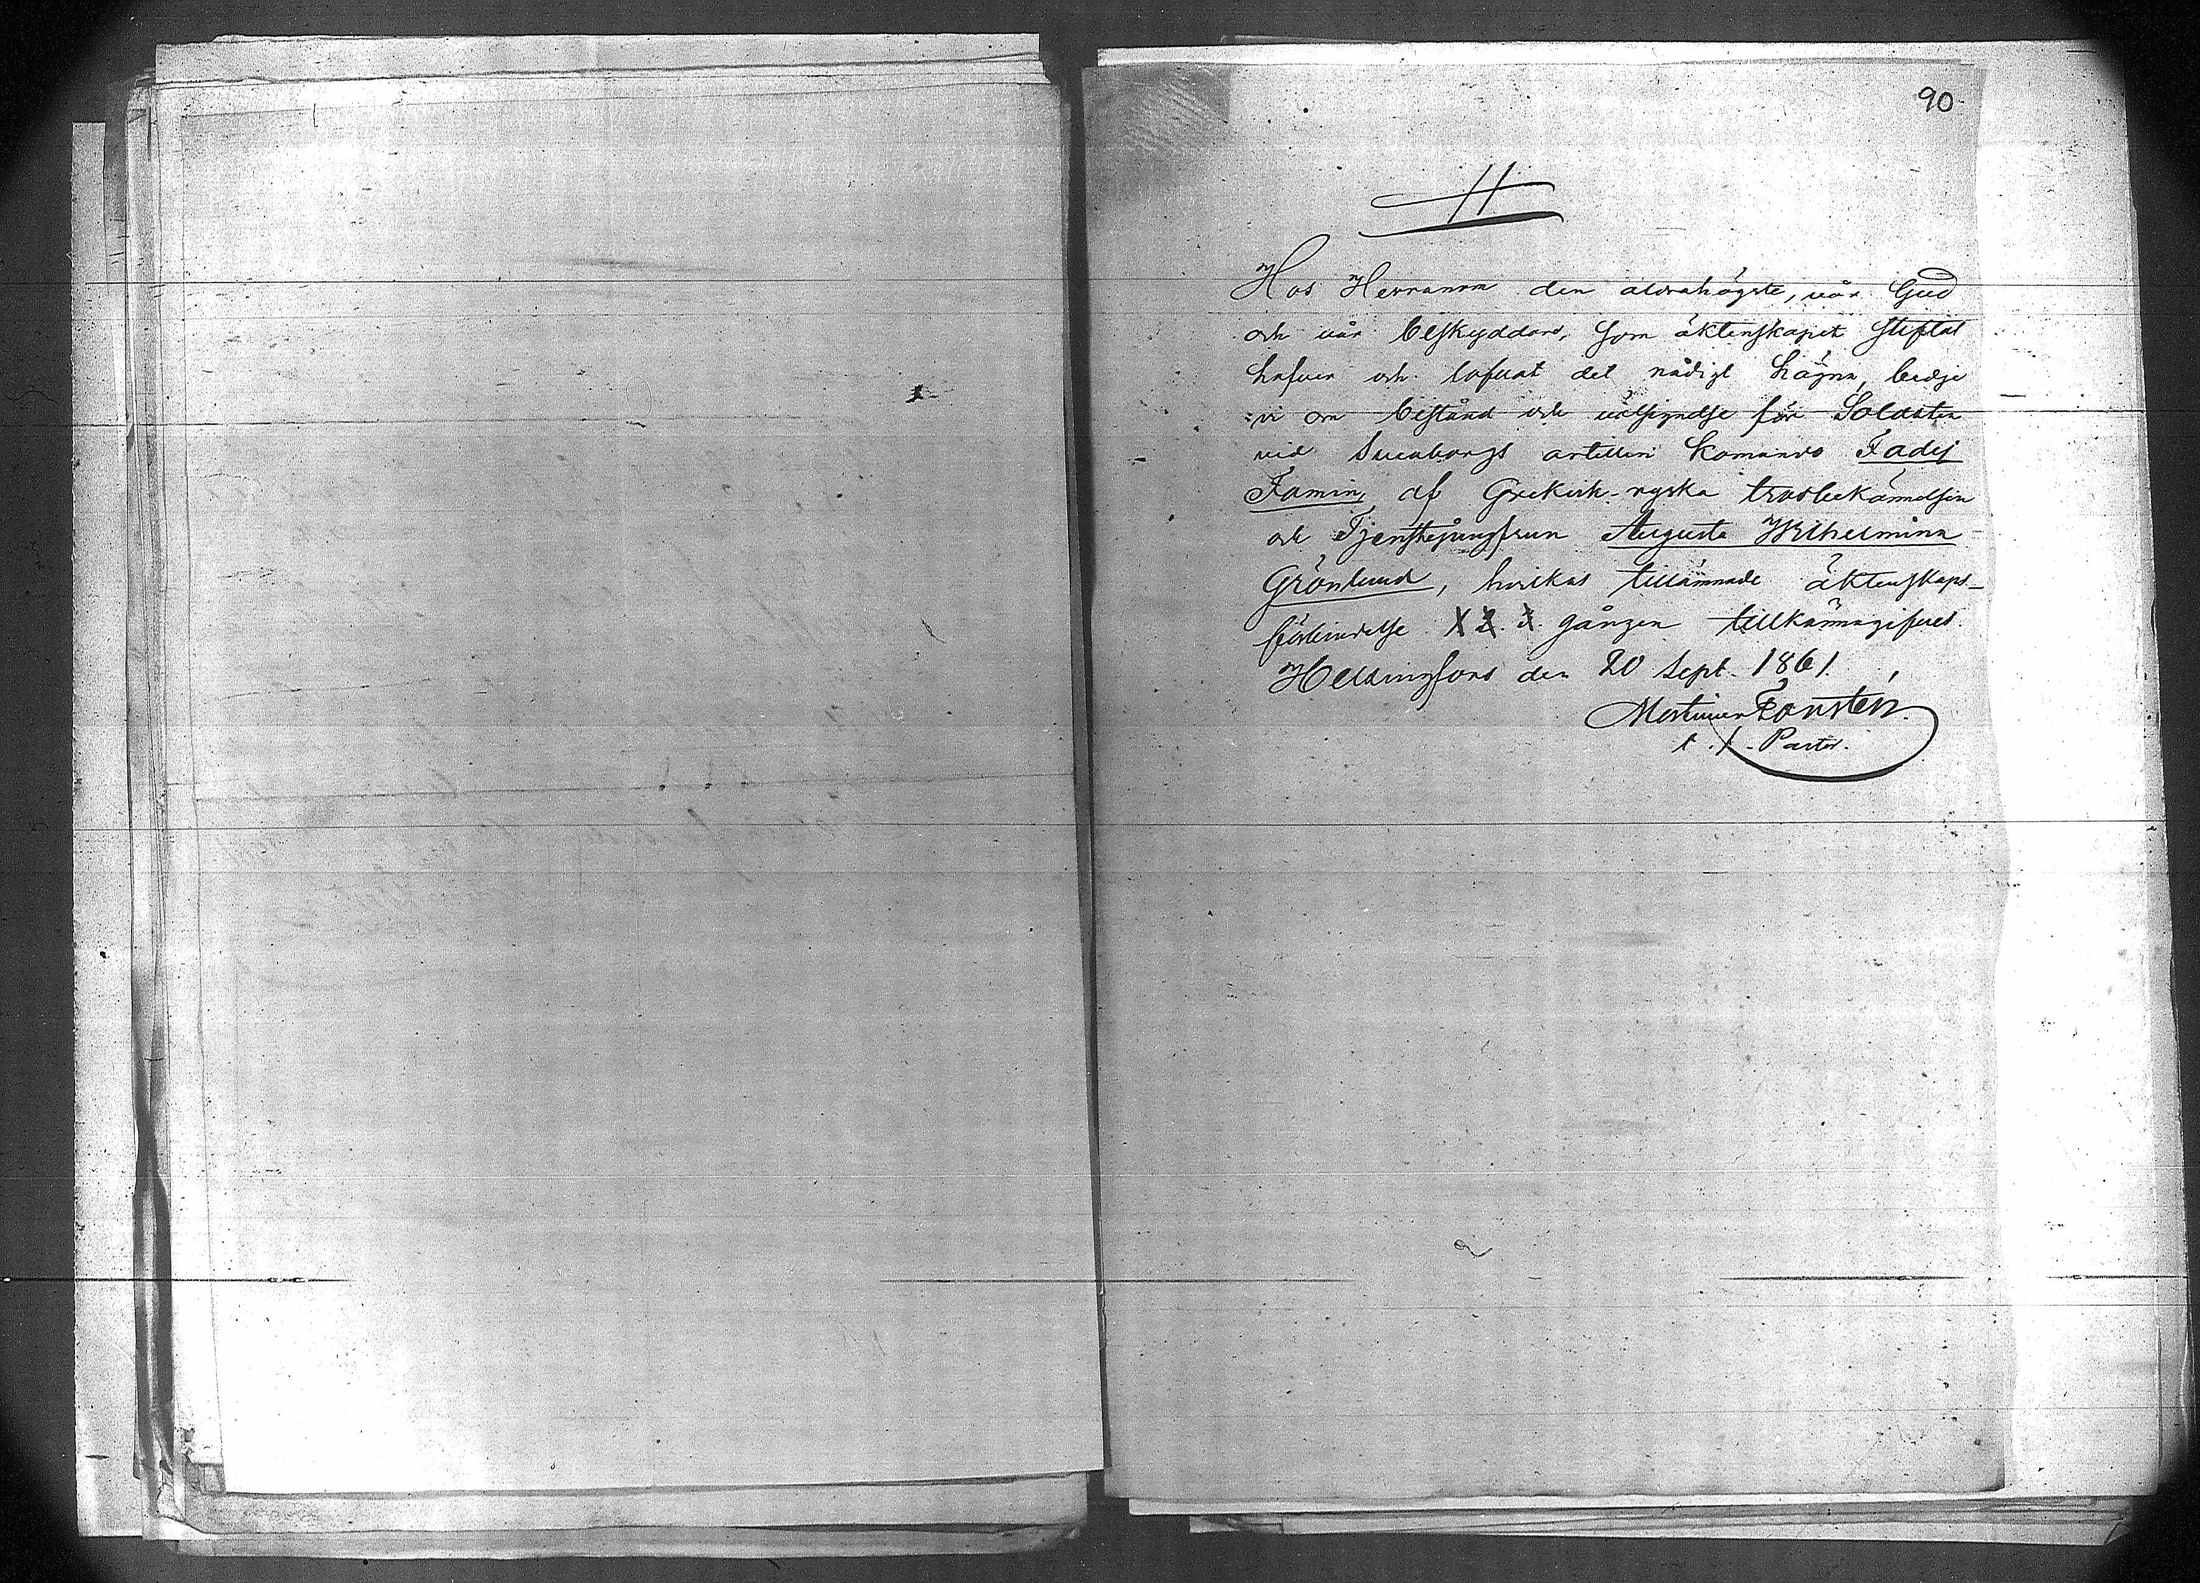 90
H
Hos Herranom den aldrahögste, vår Gud
och vår beskyddare, som äktenskapet stiftat
hafver och lofvat det nådigt hägna, bedje
vi om bestånd och välsignelse för Soldaten
vid Sveaborgs artilleri Komando Fadej
Famin, af Grekisk-ryska trosbekännelsen
och Tjenstejungfrun Augusta Wilhelmina
Grönlund, hvilkas tillämnade äktenskaps-
förbindelse 1. 2. 3. gången tillkännagifves.
Helsingfors den 20 Sept. 1861.
Mortimer Forstén.
t. f. Pastor.